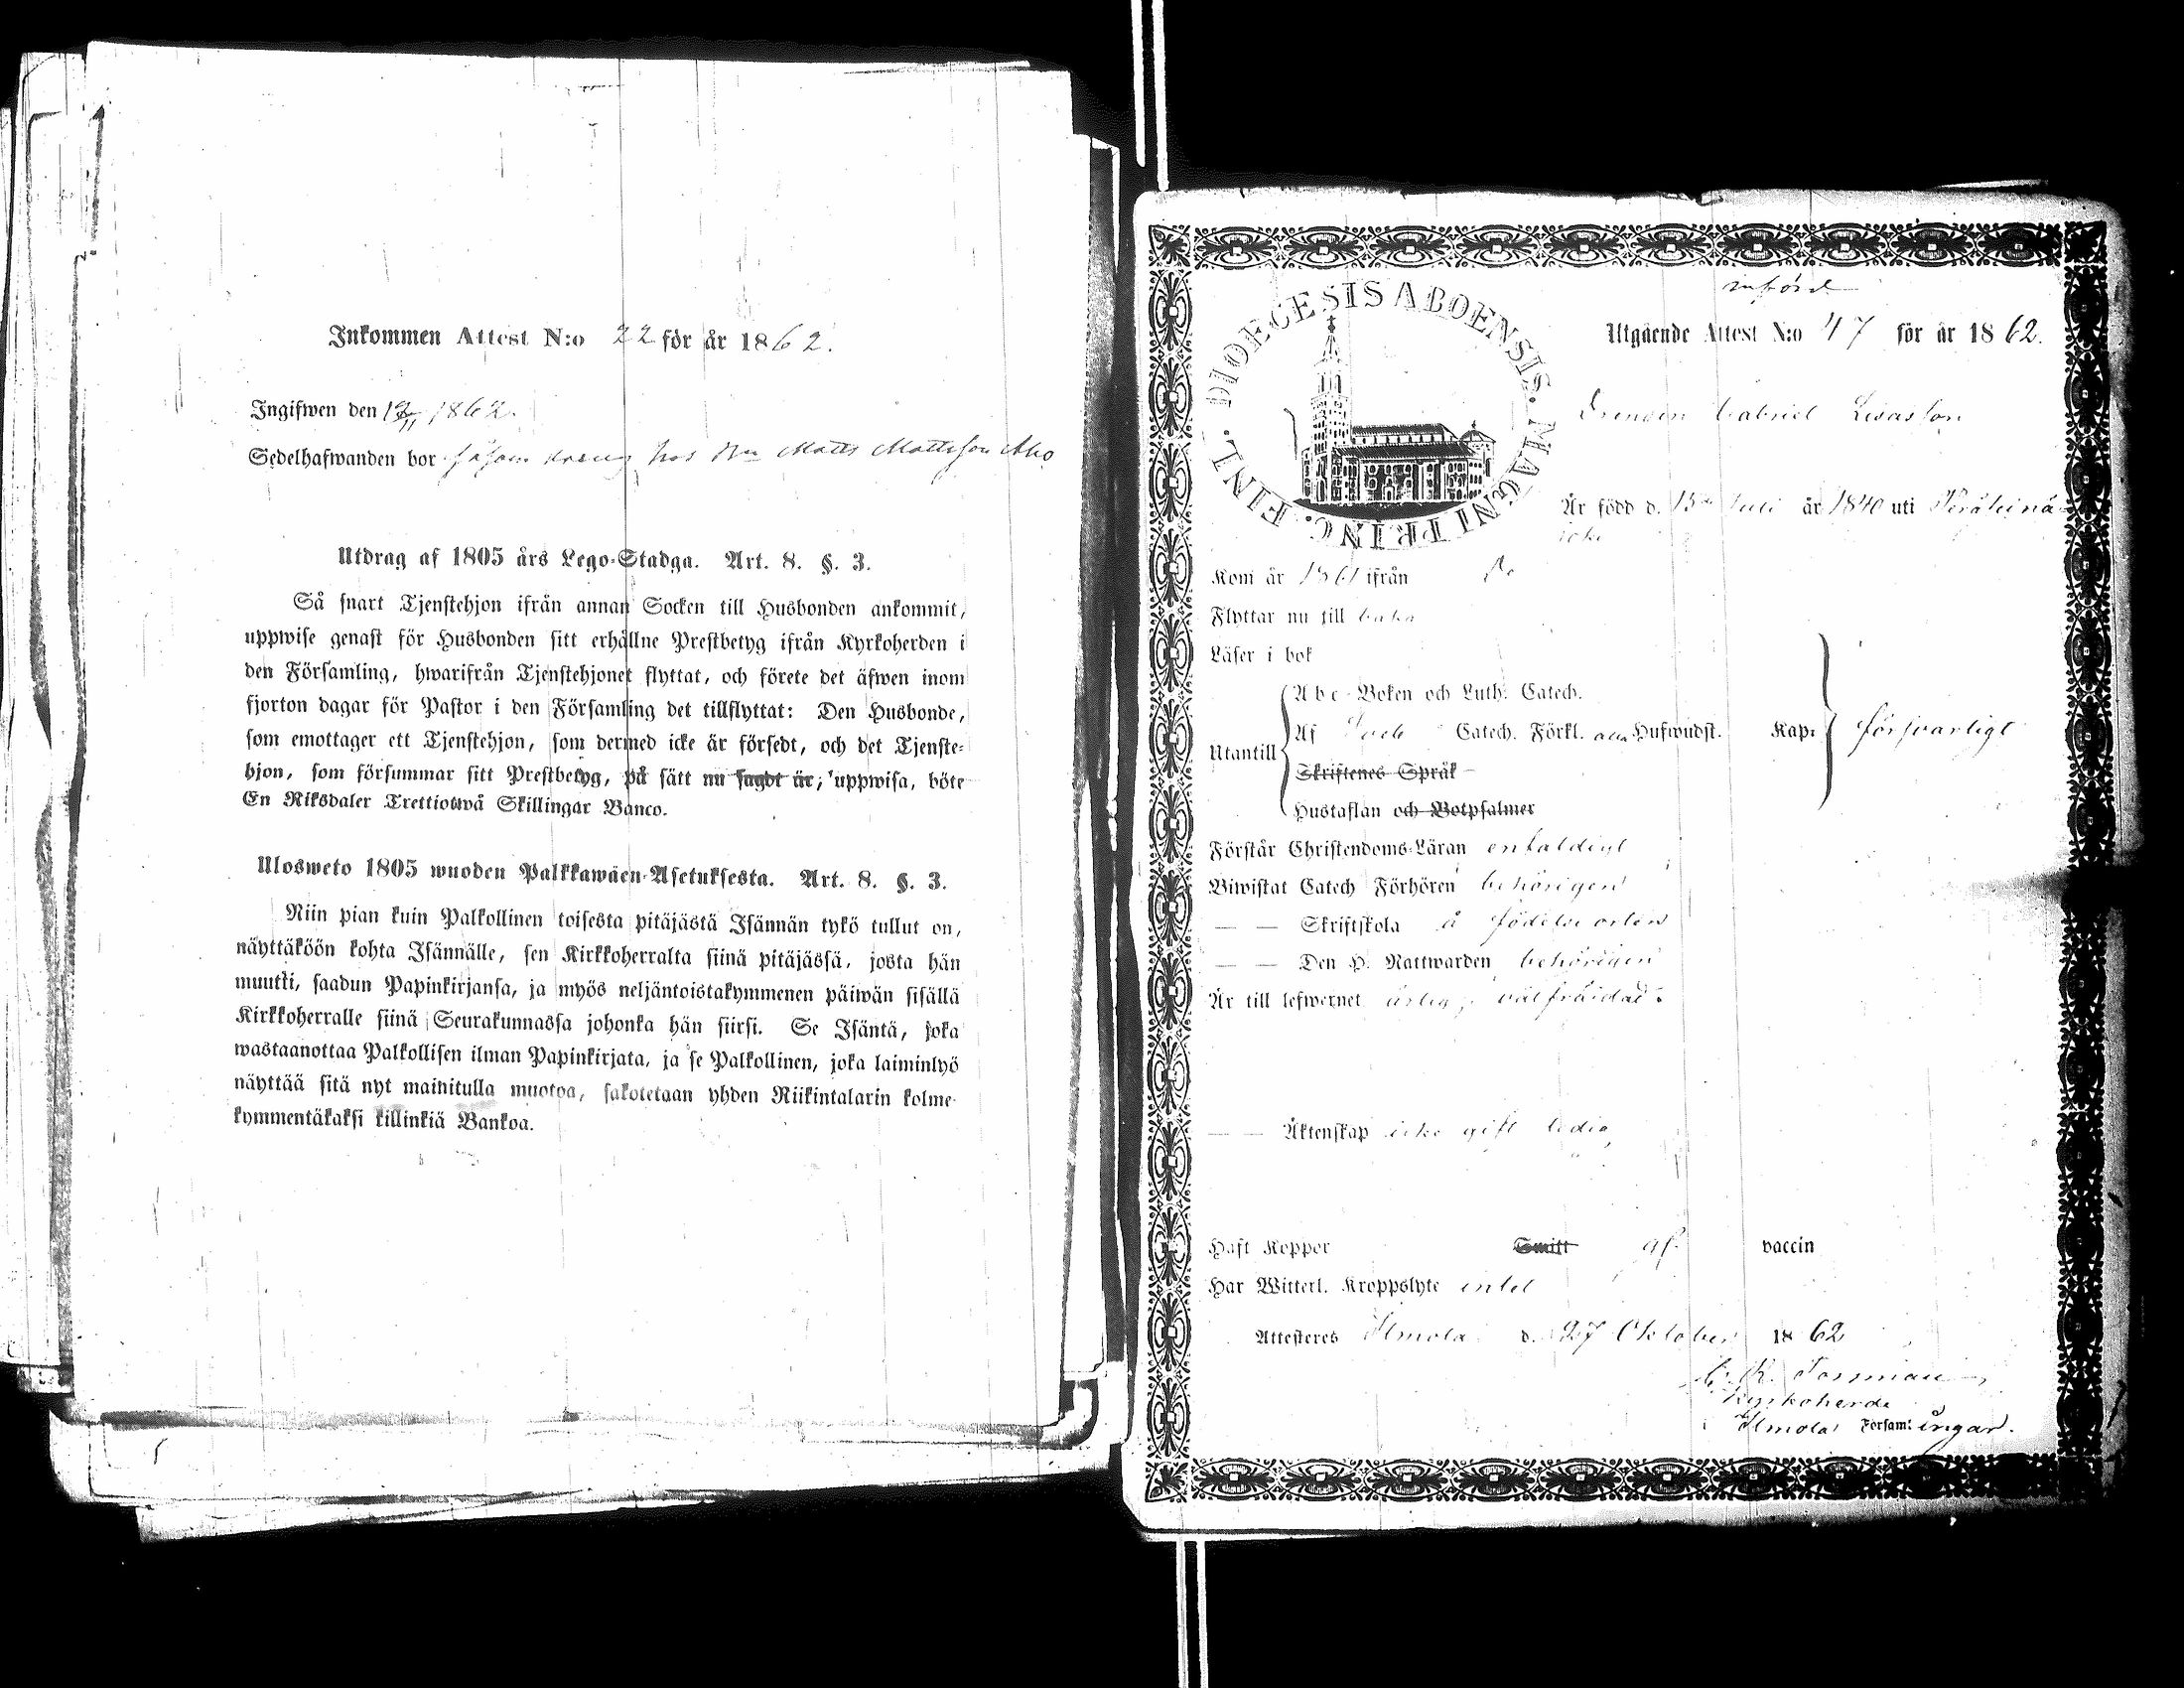 Inkommen Attest N:o 22 för år 1862.
Ingifwen den 12/11 1862.
Sedelhafwanden bor såsom dreng hos Matts Mattsson Aho
Utdrag af 1805 års Lego-Stadga. Art. 8. §. 3.
Så snart Tjenstehjon ifrån annan Socken till Husbonden ankommit,
uppwise genast för Husbonden sitt erhållne Prestbetyg ifrån Kyrkoherden i
den Församling, hwarifrån Tjenstehjonet flyttat, och förete det äfwen inom
fjorton dagar för Pastor i den Församling det tillflyttat: Den Husbonde,
som emottager ett Tjenstehjon, som dermed icke är försedt, och det Tjenste-
hjon, som försummar sitt Prestbetyg, på sätt nu sagdt är, uppwisa, böte
En Riksdaler Trettiotwå Skillingar Banco.
Ulosweto 1805 wuoden Palkkawäen-Asetuksesta. Art. 8. §. 3.
Niin pian kuin Palkollinen toisesta pitäjästä Isännän tykö tullut on,
näyttäköön kohta Isännälle, sen Kirkkoherralta siinä pitäjässä, josta hän
muutti, saadun Papinkirjansa, ja myös neljäntoistakymmenen päiwän sisällä
Kirkkoherralle siinä Seurakunnassa johonka hän siirsi. Se Isäntä, joka
wastaanottaa Palkollisen ilman Papinkirjata, ja se Palkollinen, joka laiminlyö
näyttää sitä nyt mainitulla muotoa, sakotetaan yhden Riikintalarin kolme-
kymmentäkaksi killinkiä Bankoa.
DIOECESIS ABOENSIS. MAGNI PRINC. FINL.
införd
Utgående Attest N:o 47 för år 1862.
Drengen Gabriel Lisasson
Är född d. 15de Juli år 1840 uti Peräseinä-
joki
Kom år 1861 ifrån do
Flyttar nu till baka
Läser i bok
Utantill
Abc-Boken och Luth. Catech.
Af Catech. Förkl. alla Hufwudst. Kap:
försvarligt
Skriftenes Språk
Hustaflan och Botpsalmer
Förstår Christendoms-Läran enfaldigt
Biwistat Catech Förhören behörigen
— — Skriftskola å födelse orten
— — Den H. Nattwarden behörigen
Är till lefwernet ärlig, välfräjdad.
— — Äktenskap icke gift ledig
Haft Koppor Smitt af vaccin
Har Witterl. Kroppslyte intet
Attesteres Ilmola d. 27 Oktober 1862
Kyrkoherde
i Ilmola Församl ingar.